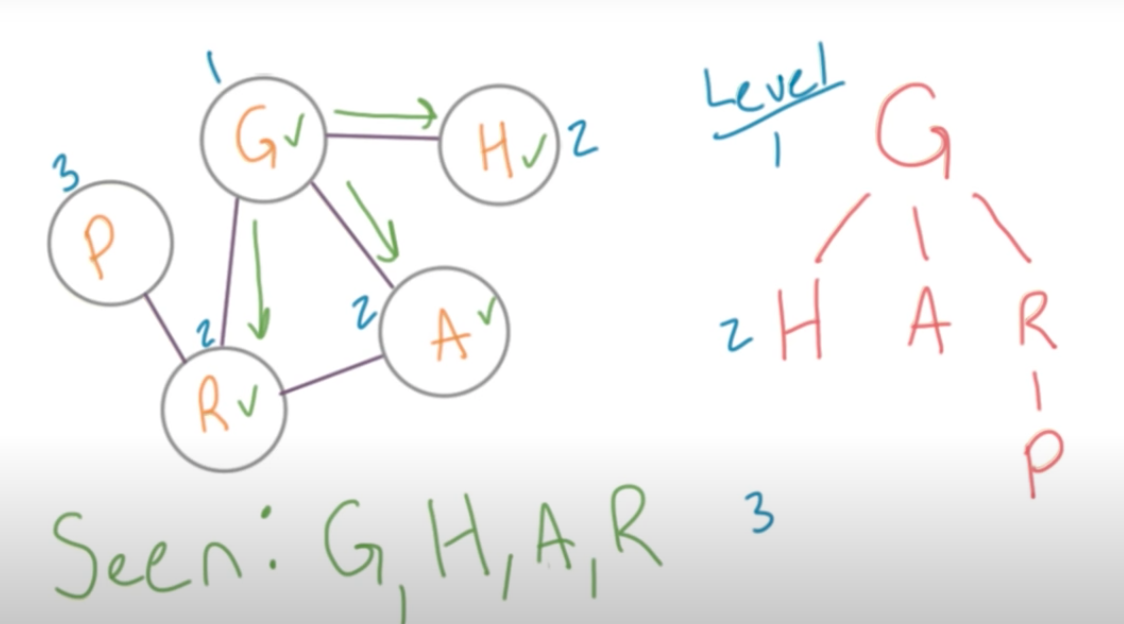 1
G
H 2
3
P
2
A
2
R
Level
1
G
2 H A R
P
3
Seen: G, H, A, R